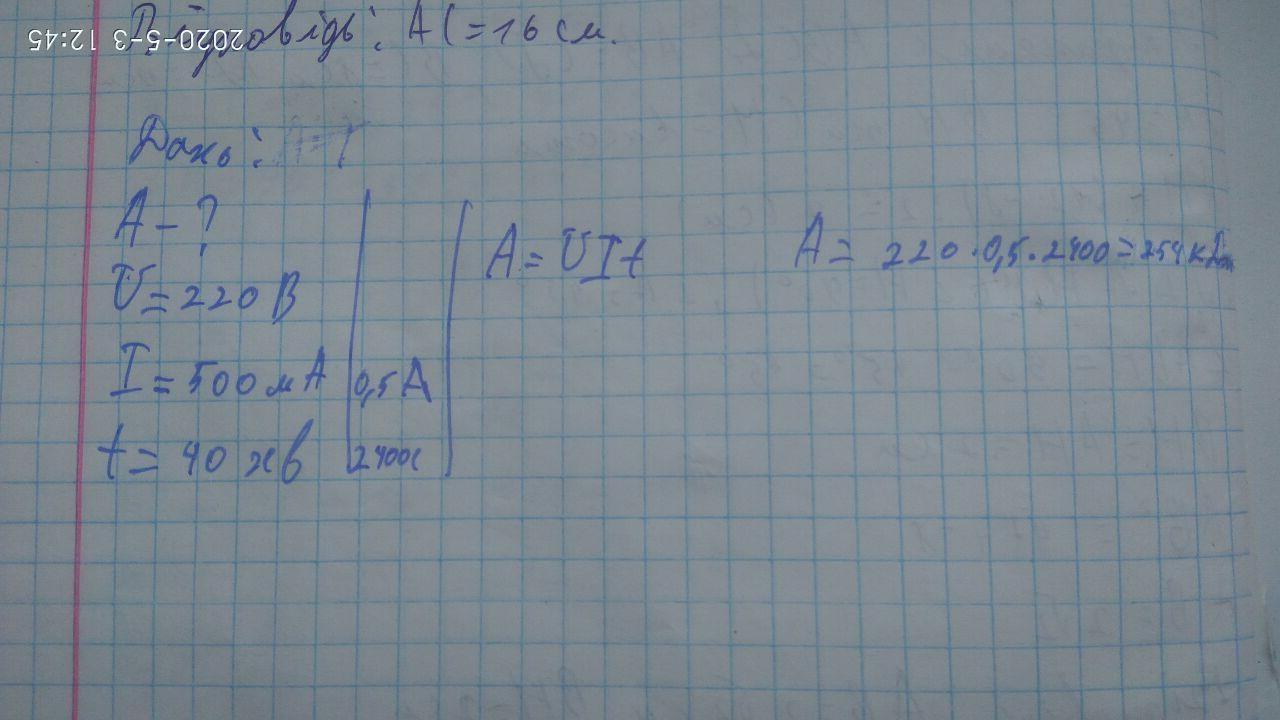 Відповідь: AC = 16 см.
2020-5-3 12:45
Дано:
A - ?
U = 220 В
I = 500 мА 0,5 А
t = 40 хв 2400с
A = UIt
A = 220 · 0,5 · 2400 = 254 кДж